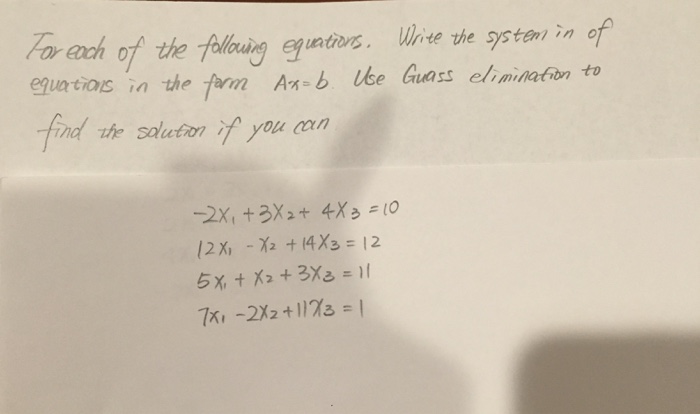 For each of the following equations. Write the system in of
equations in the form Ax=b. Use Guass elimination to
find the solution if you can
-2x₁ + 3x₂ + 4x₃ = 10
12x₁ - x₂ + 14x₃ = 12
5x₁ + x₂ + 3x₃ = 11
7x₁ - 2x₂ + 11x₃ = 1